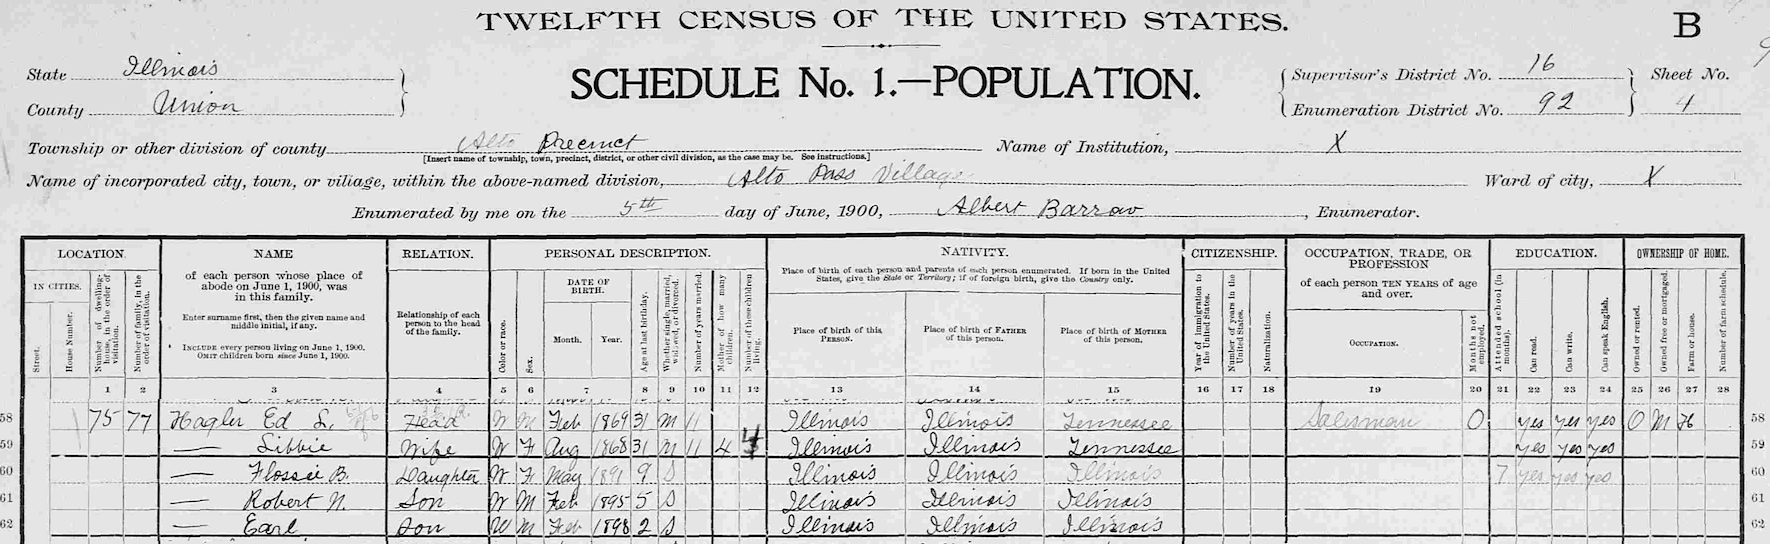 TWELFTH CENSUS OF THE UNITED STATES.
B
State Illinois
County Union
SCHEDULE No. 1.—POPULATION.
Supervisor's District No. 16
Enumeration District No. 92
Sheet No.
4
Township or other division of county Alto Precinct
[Insert name of township, town, precinct, district, or other civil division, as the case may be. See instructions.]
Name of Institution, X
Name of incorporated city, town, or village, within the above-named division, Alto Pass Village
Ward of city, X
Enumerated by me on the 5th day of June, 1900, Albert Barrow, Enumerator.
LOCATION.
IN CITIES.
Street.
House Number.
Number of dwelling-house, in the order of visitation.
Number of family, in the order of visitation.
NAME
of each person whose place of
abode on June 1, 1900, was
in this family.
Enter surname first, then the given name and
middle initial, if any.
INCLUDE every person living on June 1, 1900.
OMIT children born since June 1, 1900.
RELATION.
Relationship of each
person to the head
of the family.
PERSONAL DESCRIPTION.
Color or race.
Sex.
DATE OF
BIRTH.
Month.
Year.
Age at last birthday.
Whether single, married, widowed, or divorced.
Number of years married.
Mother of how many children.
Number of these children living.
NATIVITY.
Place of birth of each person and parents of each person enumerated. If born in the United
States, give the State or Territory; if of foreign birth, give the Country only.
Place of birth of this
PERSON.
Place of birth of FATHER
of this person.
Place of birth of MOTHER
of this person.
CITIZENSHIP.
Year of immigration to the United States.
Number of years in the United States.
Naturalization.
OCCUPATION, TRADE, OR
PROFESSION
of each person TEN YEARS of age
and over.
OCCUPATION.
Months not employed.
EDUCATION.
Attended school (in months).
Can read.
Can write.
Can speak English.
OWNERSHIP OF HOME.
Owned or rented.
Owned free or mortgaged.
Farm or house.
Number of farm schedule.
1 2 3 4 5 6 7 8 9 10 11 12 13 14 15 16 17 18 19 20 21 22 23 24 25 26 27 28
58 75 77 Hagler Ed L. Head W M Feb 1869 31 M 11 Illinois Illinois Tennessee Salesman 0 yes yes yes O M H 58
59 — Libbie Wife W F Aug 1868 31 M 11 4 Illinois Illinois Tennessee yes yes yes 59
60 — Flossie B. Daughter W F May 1891 9 S Illinois Illinois Illinois 7 yes yes yes 60
61 — Robert N. Son W M Feb 1895 5 S Illinois Illinois Illinois 61
62 — Earl Son W M Feb 1898 2 S Illinois Illinois Illinois 62